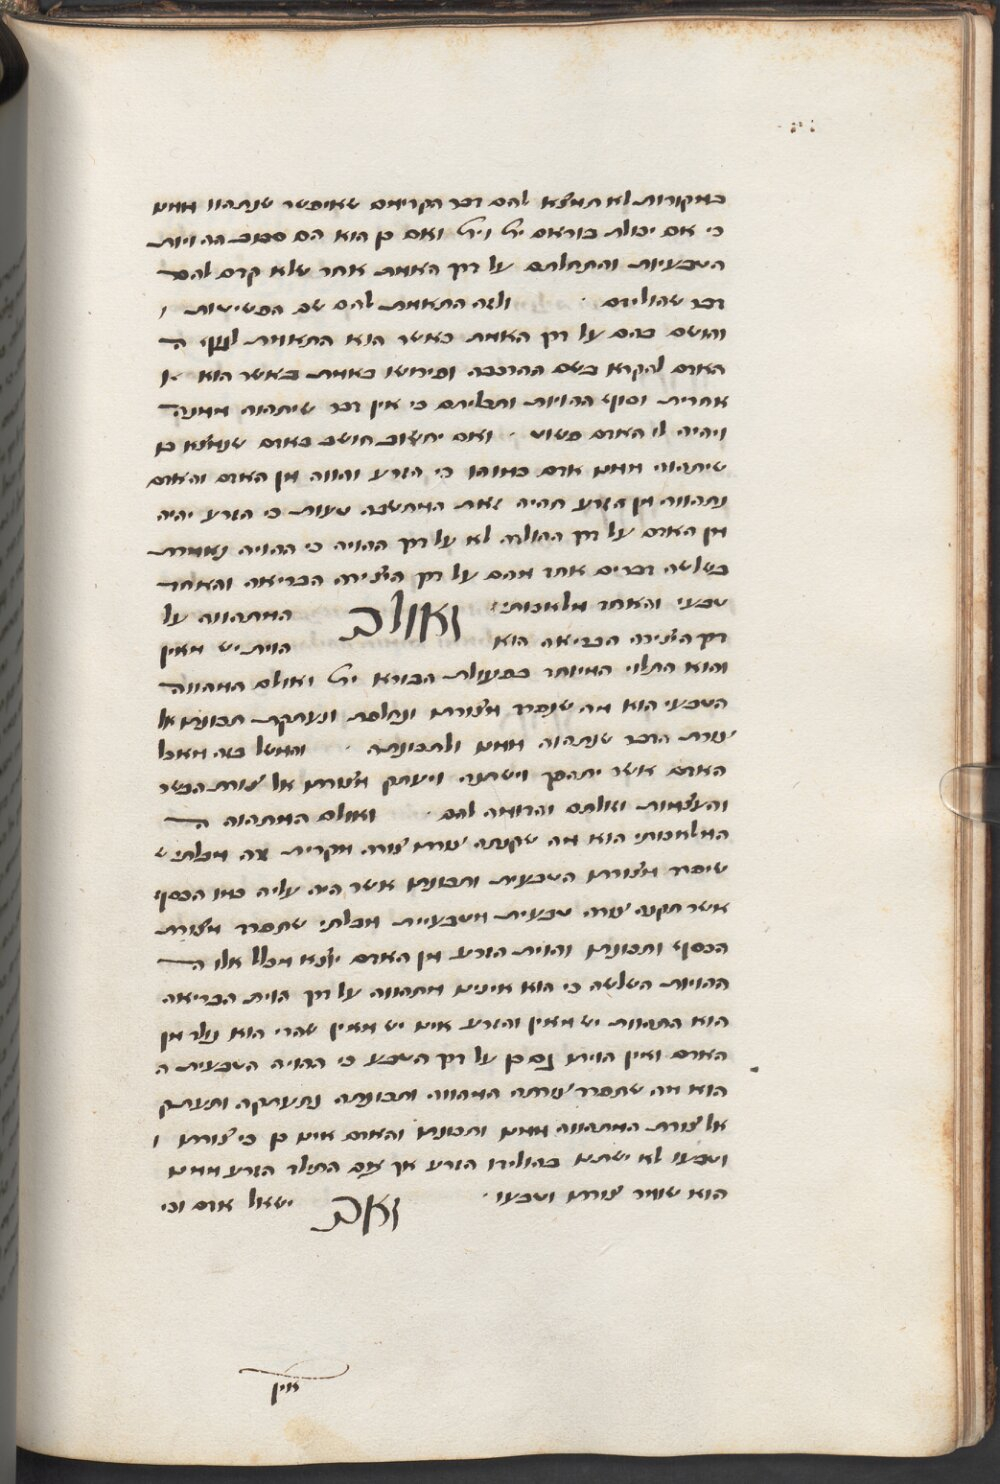 במקורות לא תמצא להם דבר הקדימם שאיפשר שנתהוו ממנו
כי אם יכולת בוראם ית' וית' ואם כן הוא הם סבוב ההויות
הטבעיות והתחלתם על דרך האמת אחר שלא קדם להם
דבר שהולידם ולזה התאמת להם שם הפשיטות
והושם בהם על דרך האמת כאשר הוא התאוות לגוף ה
האדם להקרא בשם ההרכבה ופירושו באמת כאשר הוא
אחרית וסוף ההויות ותכליתם כי אין דבר שיתהוה ממנה
ויהיה לו האדם פשוט ואם יחשוב חושב באדם שנמצא כן
שיתהוה ממנו אדם כמוהו כי הזרע יהווה מן האדם והאדם
נתהווה מן הזרע תהיה זאת המחשבה טעות כי הזרע יהיה
מן האדם על דרך ההולדה לא על דרך ההויה כי ההויה נאמרת
בשלשה דברים אחד מהם על דרך היצירה הבריאה והאחד
טבעי והאחר מלאכותי ואולם המתהווה על
דרך היצירה הבריאה הוא הוית יש מאין
והוא התלוי המיוחד בפעולת הבורא ית' ואולם המהווה
הטבעי הוא מה שנפסד מצורתו ונחלפה ונעתקה תכונתו אל
צורת הדבר שנתהוה ממנו ולתכונתה והמשל בזה מאכל
האדם אשר יתהפך וישתנה ויעתק מצורתו אל צורת הבשר
והעצמות וזולתם והדומה להם ואולם המתהוה ה
המלאכותי הוא מה שקנתה צורתו צורה מקרית זרה מבלתי ש
שיפסד מצורתו הטבעית ותכונתו אשר היה עליה כמו הכסף
אשר תקנה צורה טבעית מטבעיית מבלתי שתפסד מצורת
הכסף ותכונתו והוית הזרע מן האדם יוצא מכלל אלו ה
ההויות השלשה כי הוא איננו מתהווה על דרך הוית הבריאה
הוא התהוות יש מאין והזרע אינו יש מאין שהרי הוא נולד מן
האדם ואין הויתו גם כן על דרך הטבע כי ההויה הטבעית ה
הוא מה שתפסד צורתה המהווה ותכונתה נתעתקה ותעתק
אל צורת המתהווה ממנו ותכונתו והאדם אינו כן כי צורתו ו
וטבעו לא ישתנו בהולידו הזרע אך עם התילד הזרע ממנו
הוא שומר צורתו וטבעו ואם ישאל אדם וכי
אין